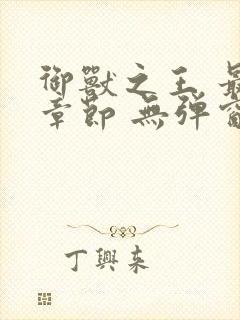 御獸之王 最
章節 無彈窗
丁興來